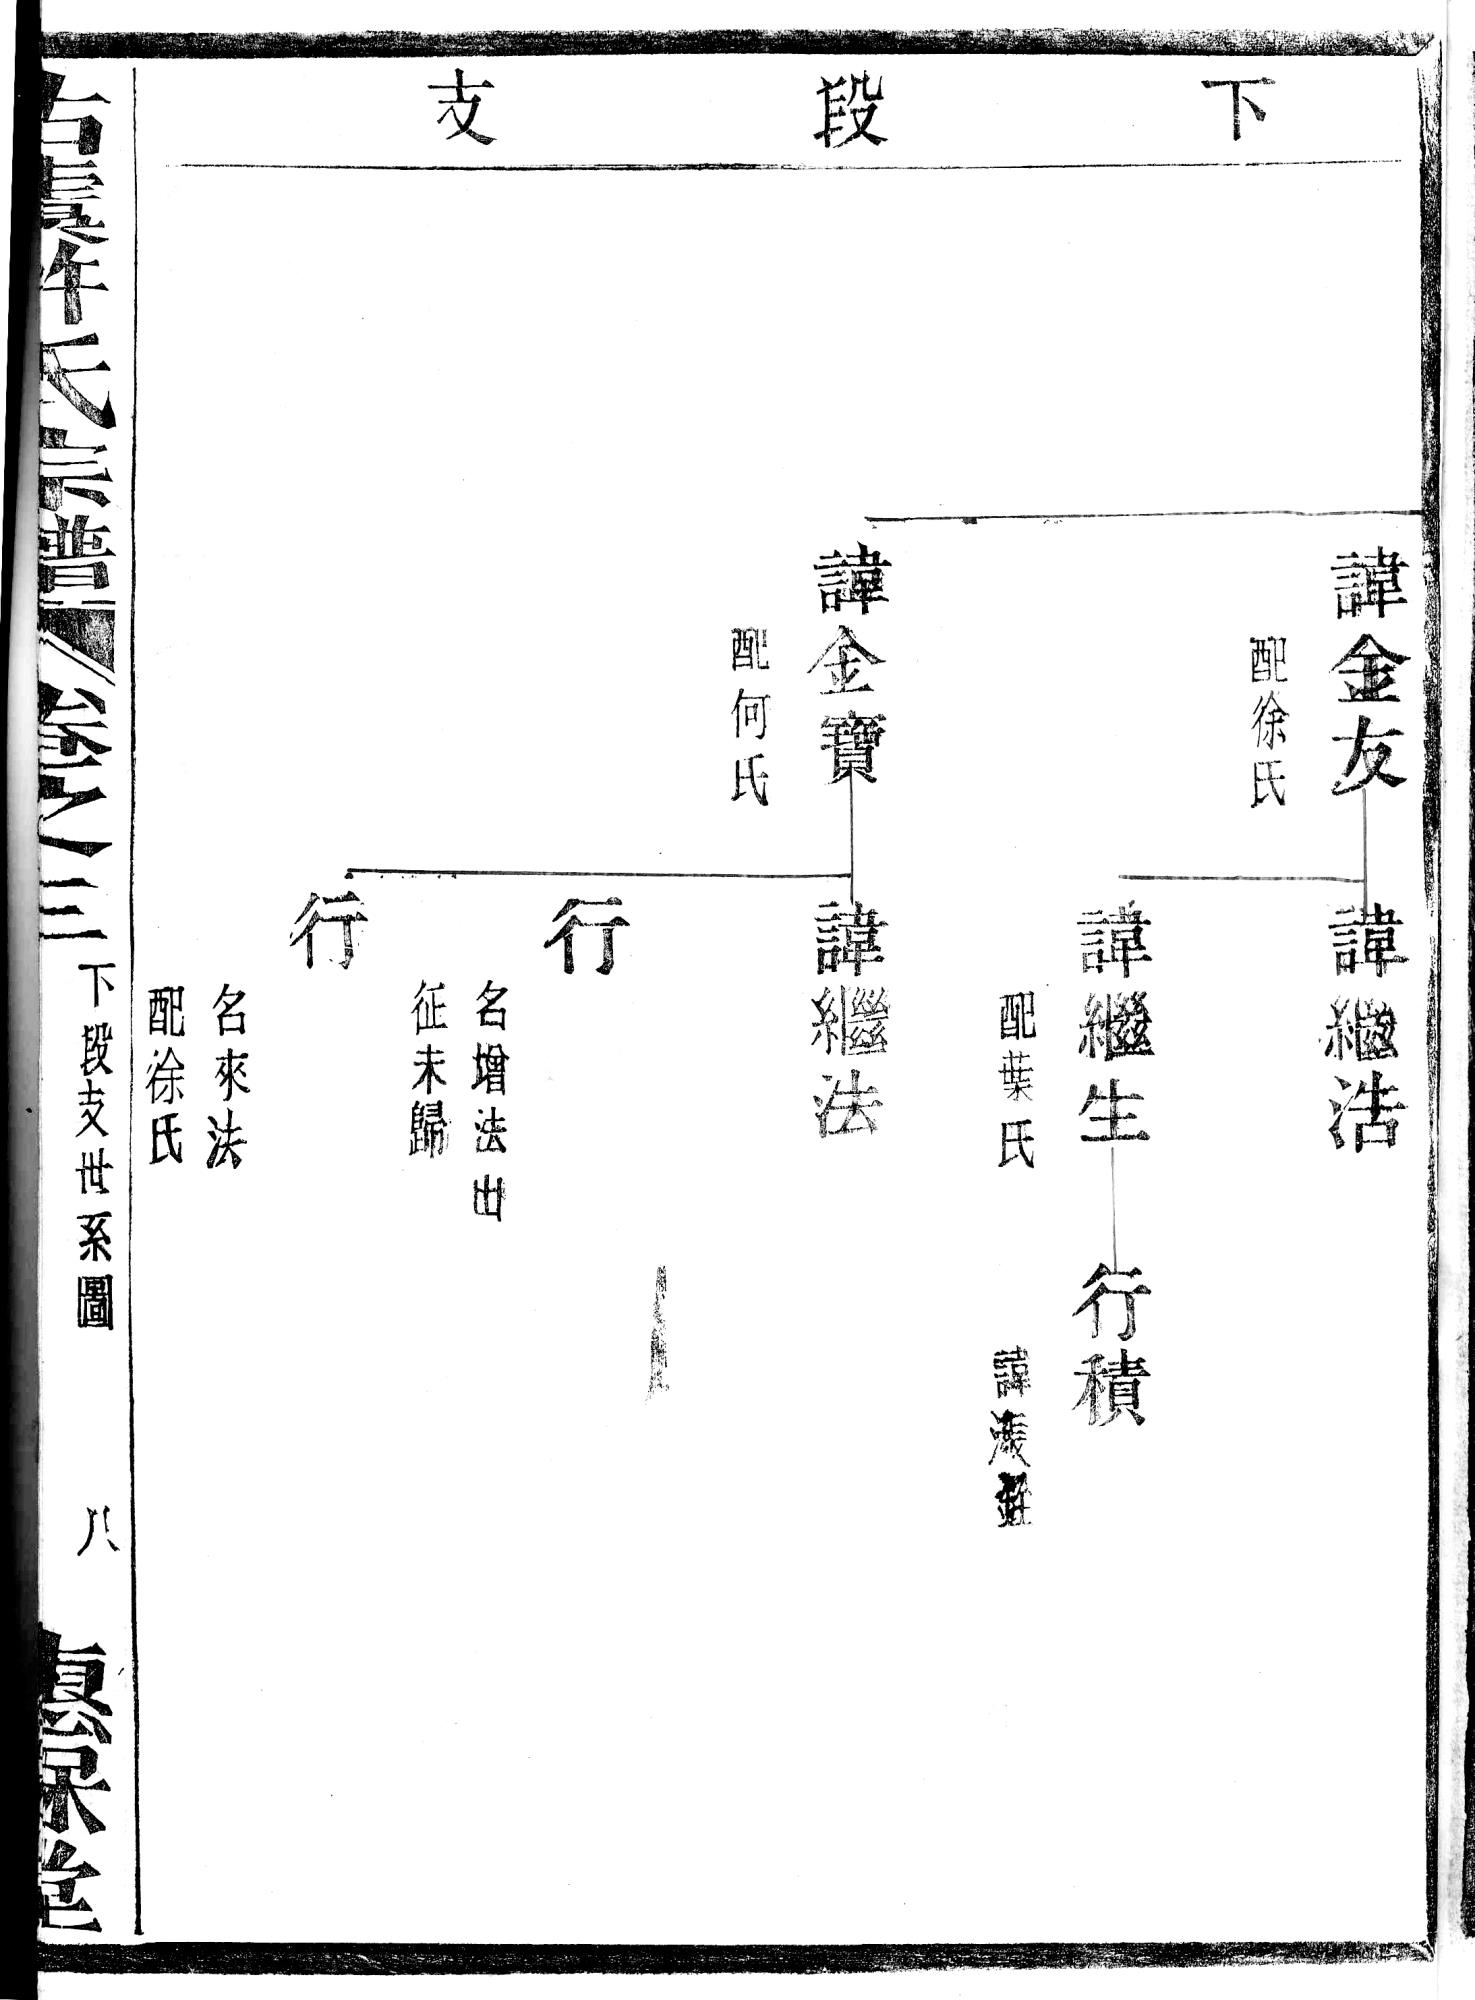 下段支
諱金友
配徐氏
諱金寶
配何氏
諱繼浩
諱繼生
配葉氏
諱繼法
行
名增法出
征未歸
行
名來法
配徐氏
行積
諱
氏宗譜
卷之三
下段支世系圖
八
堂